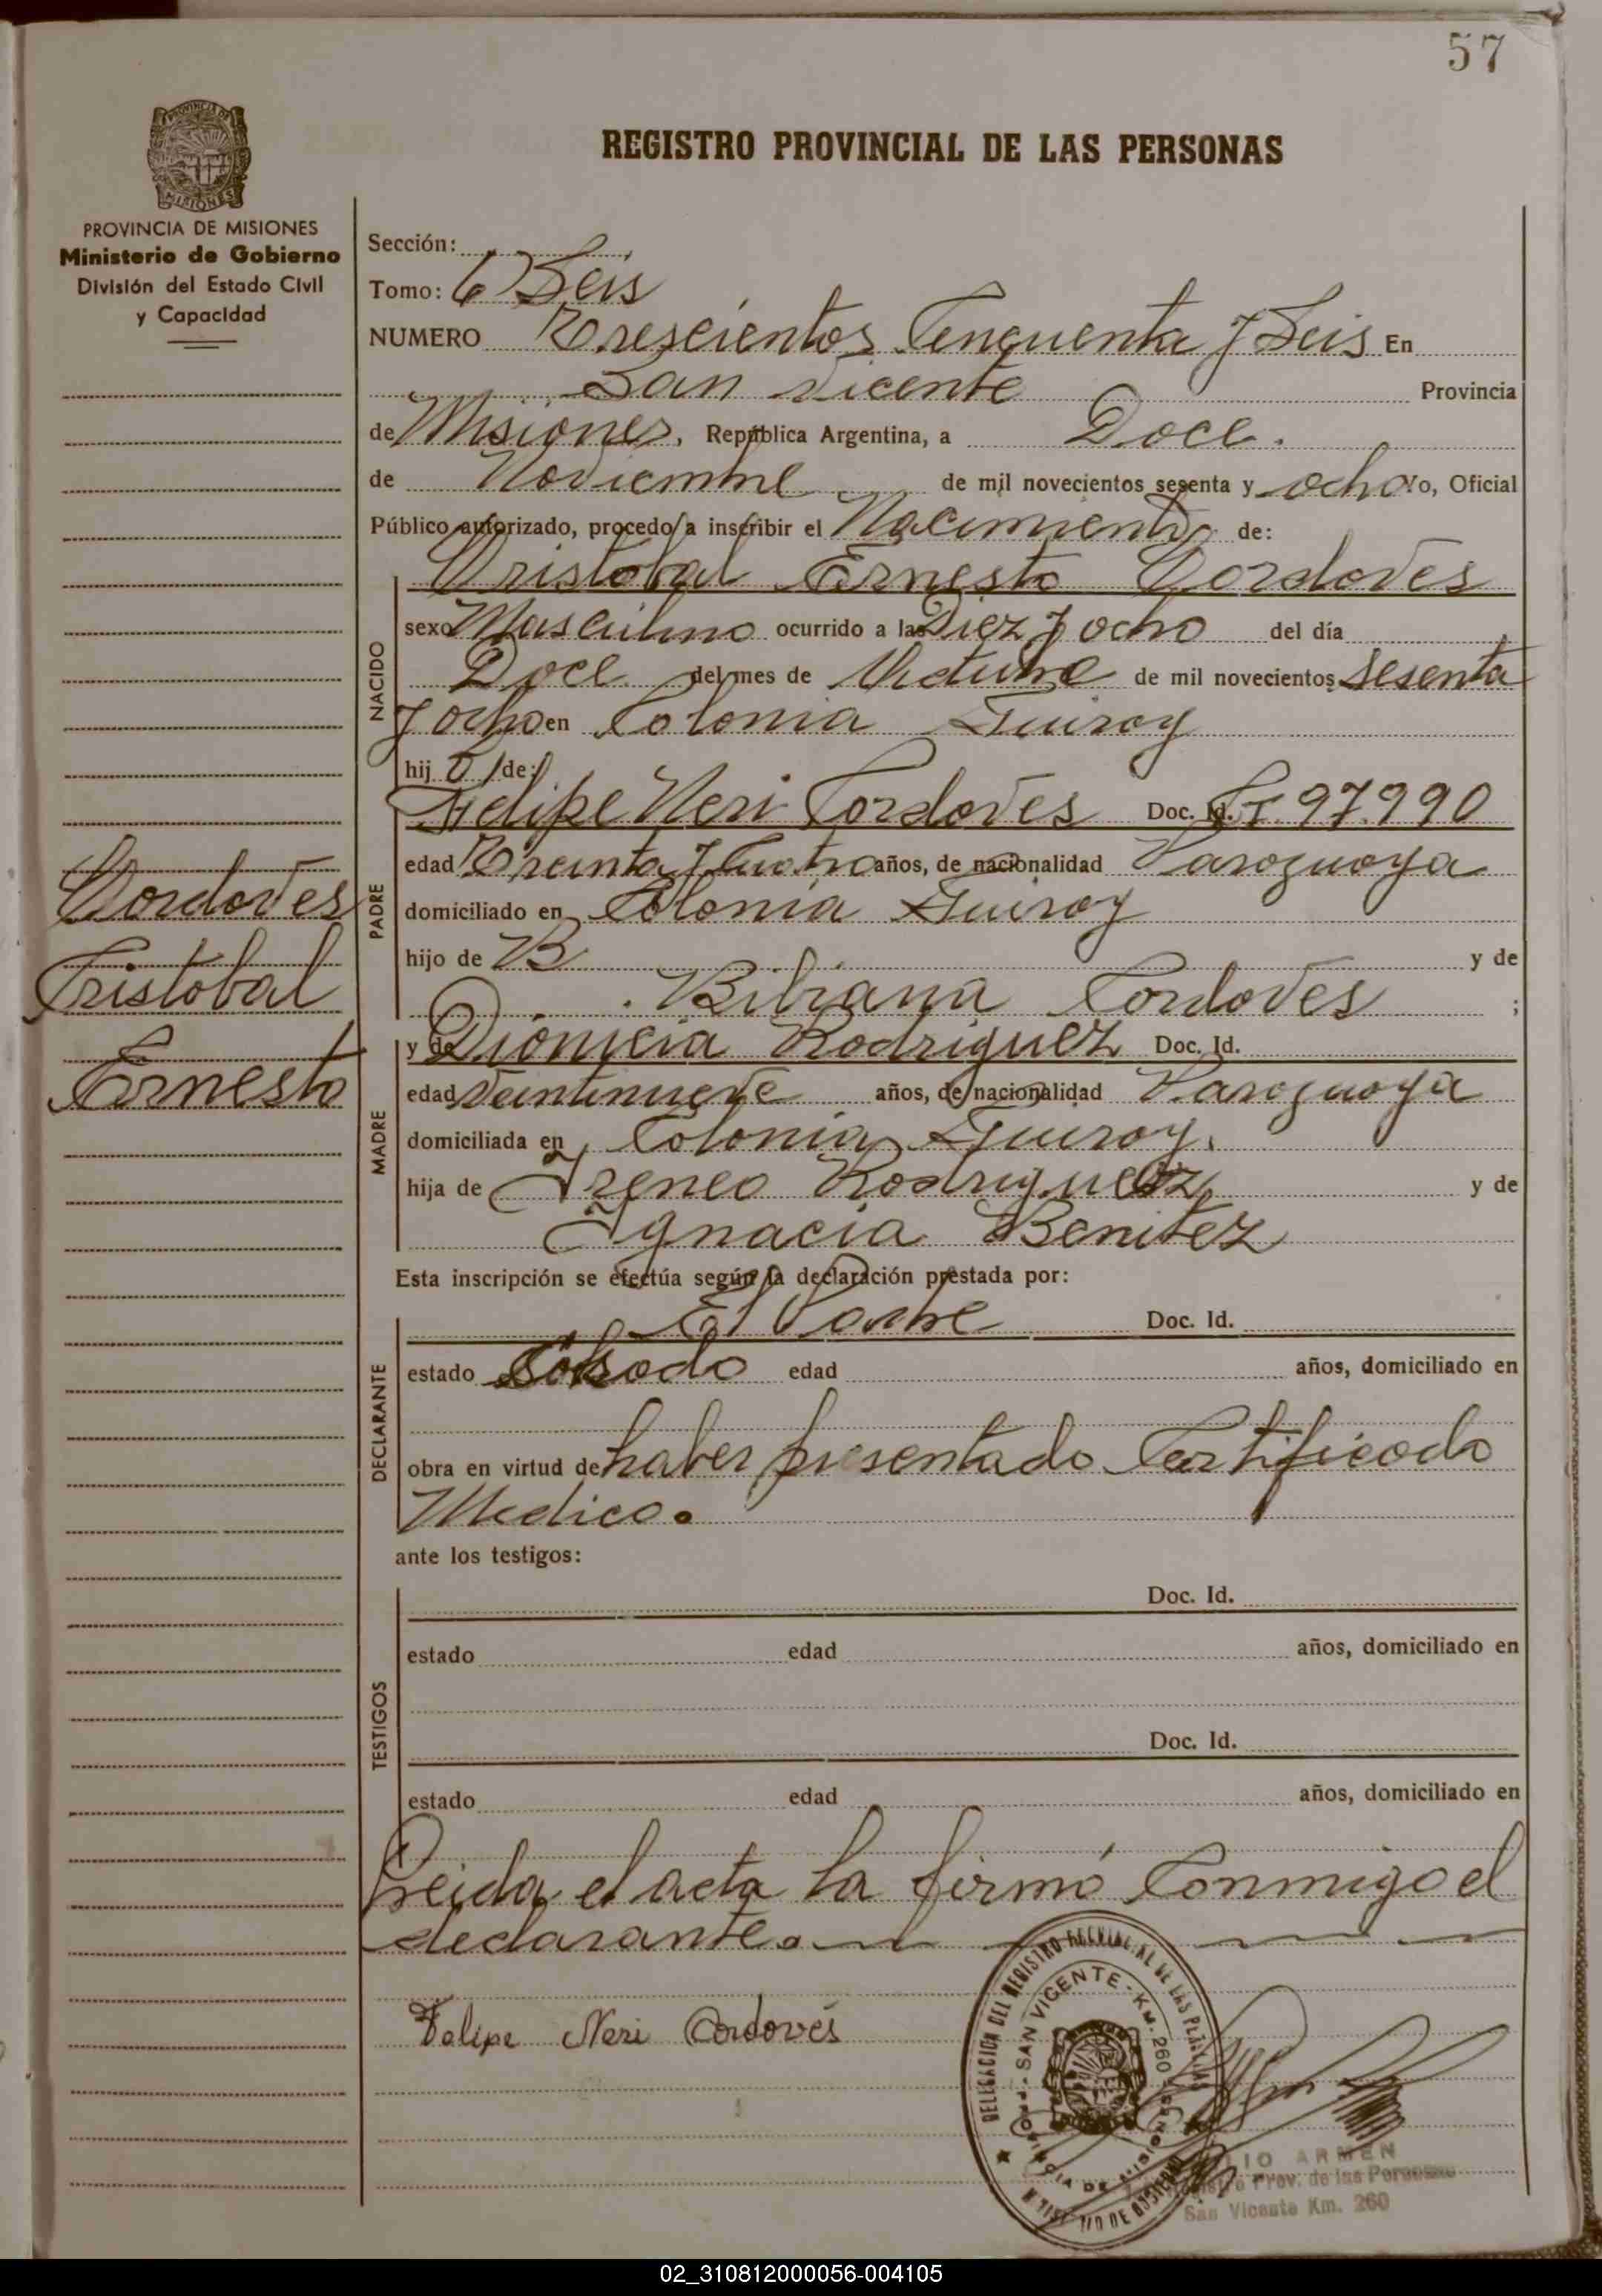 57
REGISTRO PROVINCIAL DE LAS PERSONAS
PROVINCIA DE MISIONES
Ministerio de Gobierno
División del Estado Civil
y Capacidad
Sección:
Tomo: 6 Seis
NUMERO Trescientos Cencuenta y Seis En
San Vicente Provincia
de Misiones, República Argentina, a Doce.
de Noviembre de mil novecientos sesenta y ocho Yo, Oficial
Público autorizado, procedo a inscribir el Nacimiento de:
Cristobal Ernesto Cordovés
NACIDO
sexo Masculino ocurrido a las Diez y ocho del día
Doce del mes de Octubre de mil novecientos sesenta
y ocho en Colonia
hij o de:
Felipe Neri Cordovés Doc. Id. C.I. 97.990
PADRE
edad Treinta y Cuatro años, de nacionalidad Paraguaya
domiciliado en Colonia
hijo de B y de
Bibiana Cordovés ;
Cordovés
Cristobal
Ernesto
MADRE
y de Dionicia Rodriguez Doc. Id.
edad Veintinueve años, de nacionalidad Paraguaya
domiciliada en Colonia
hija de Ireneo Rodriguez y de
Ignacia Benitez
Esta inscripción se efectúa según la declaración prestada por:
DECLARANTE
El Padre Doc. Id.
estado edad años, domiciliado en
obra en virtud de haber presentado Certificado
Medico.
ante los testigos:
TESTIGOS
Doc. Id.
estado edad años, domiciliado en
Doc. Id.
estado edad años, domiciliado en
Leida el acta la firmó Conmigo el
declarante.
Felipe Neri Cordovés
DELEGACION DEL REGISTRO PROVINCIAL DE LAS PERSONAS
SAN VICENTE - KM. 260
PROVINCIA DE MISIONES
MINISTERIO DE GOBIERNO
LIO ARMEN
Registro Prov. de las Personas
San Vicente Km. 260
02_310812000056-004105